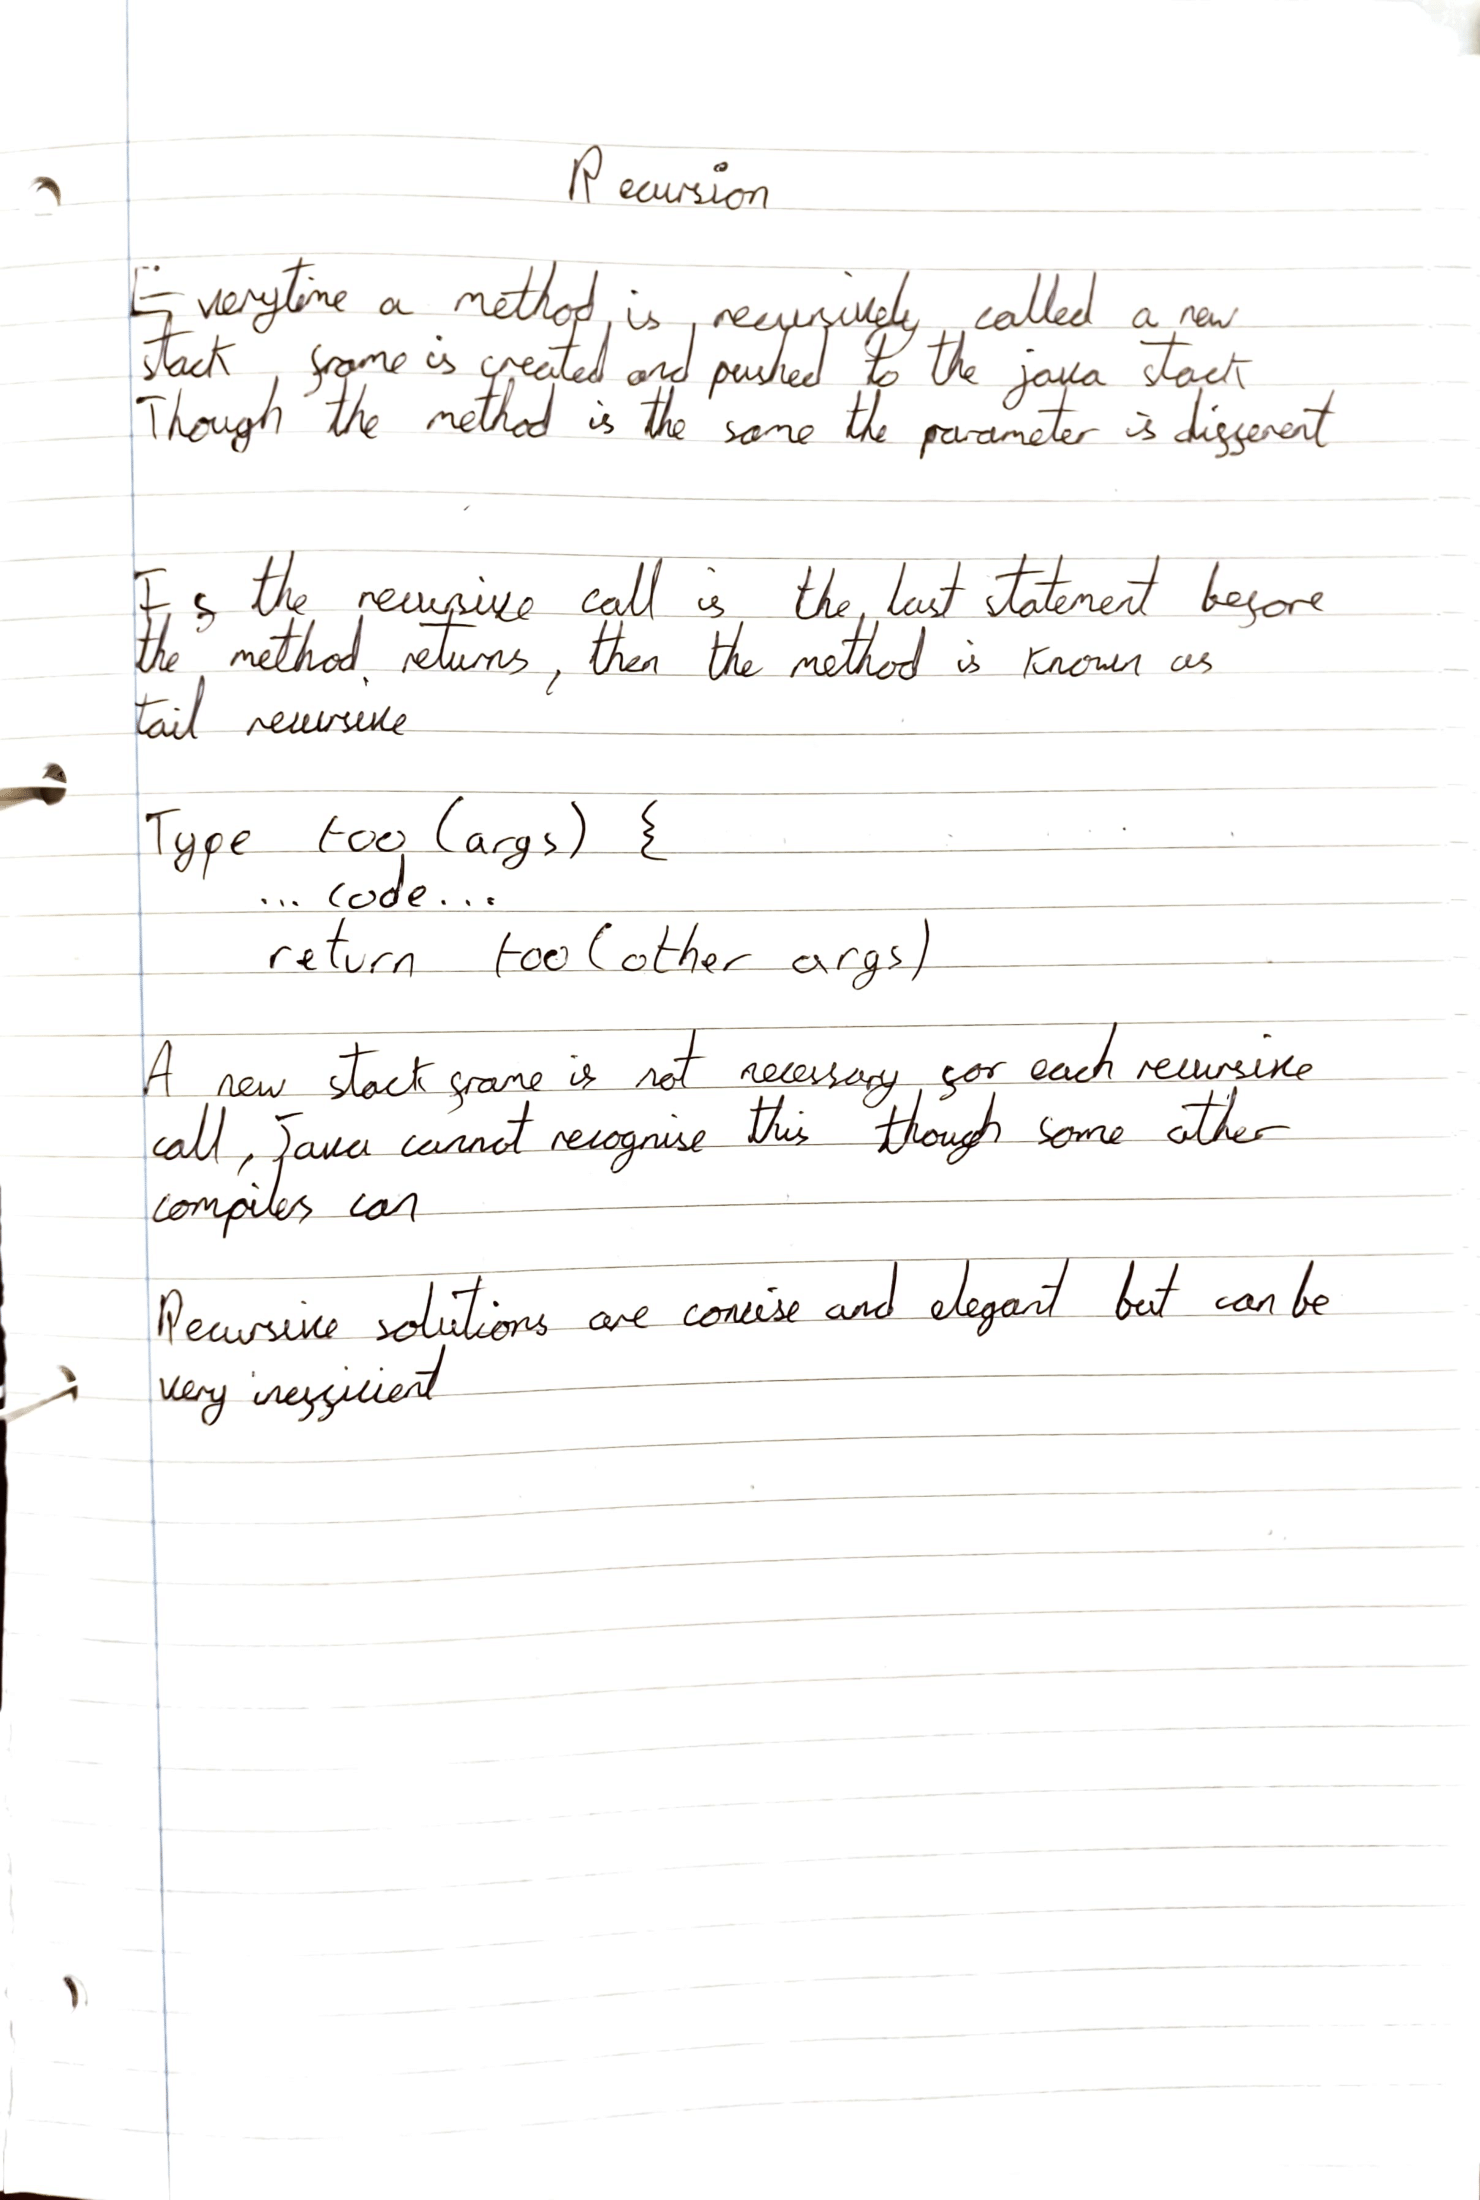 Recursion
Everytime a method is recursively called a new
stack frame is created and pushed to the java stack
Though the method is the same the parameter is different
If the recursive call is the last statement before
the method returns, then the method is known as
tail recursive
Type foo (args) {
... code...
return foo (other args)
A new stack frame is not necessary for each recursive
call, Java cannot recognise this though some other
compilers can
Recursive solutions are concise and elegant but can be
very inefficient